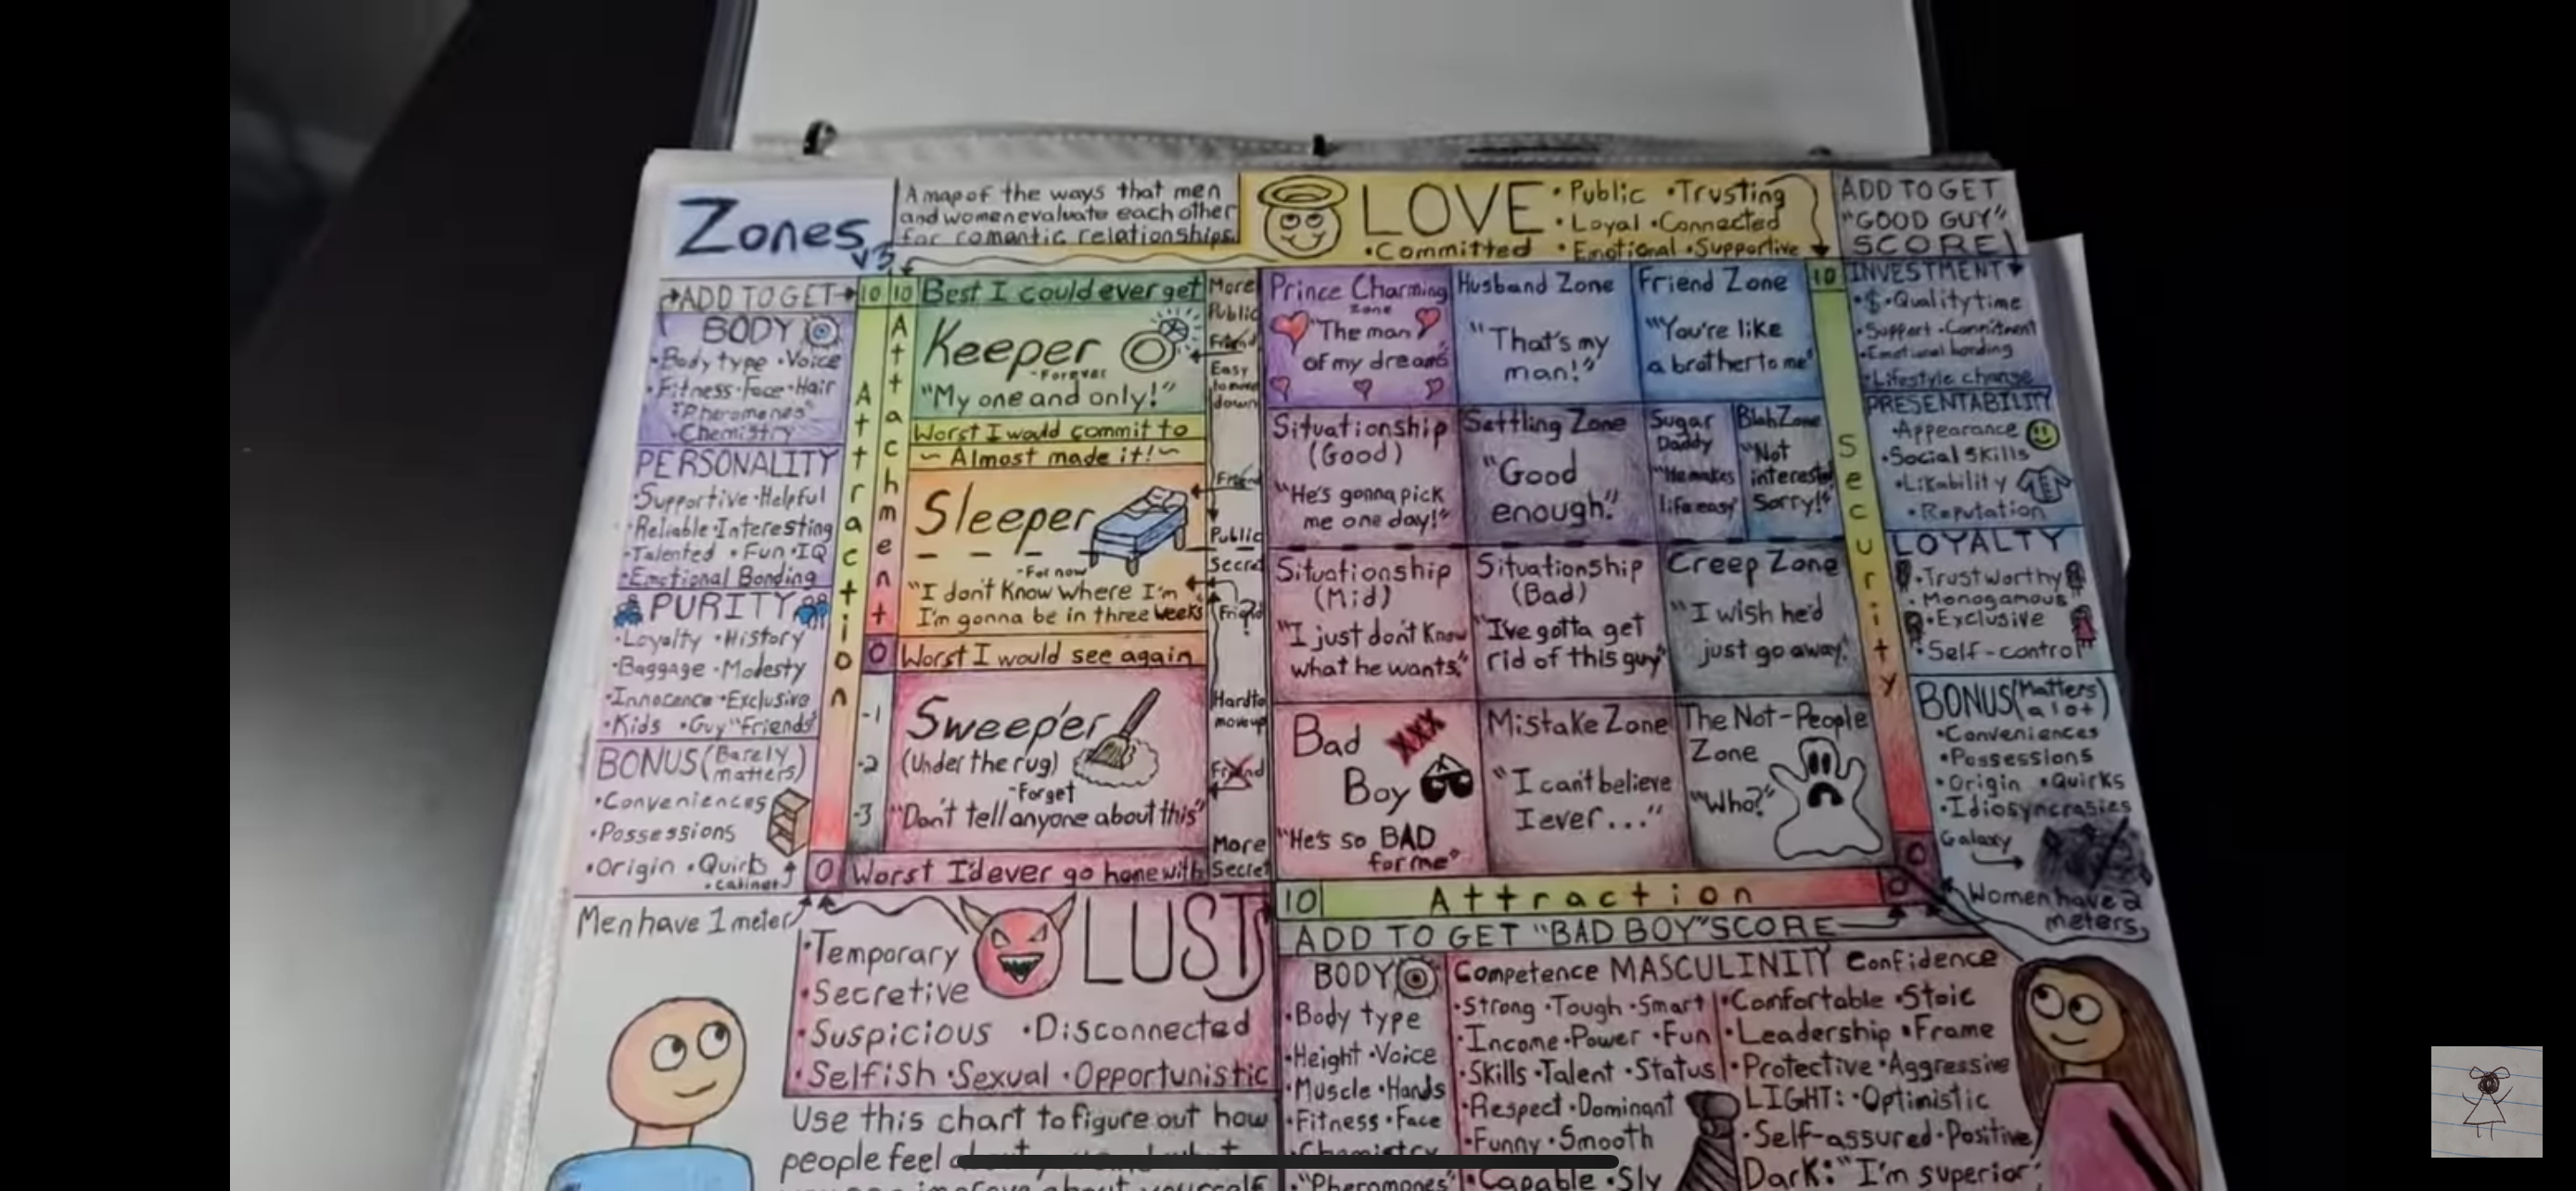 Zones
v3
A map of the ways that men
and women evaluate each other
for romantic relationships.
LOVE
•Public •Trusting
•Loyal •Connected
•Committed •Emotional •Supportive
ADD TO GET
"GOOD GUY"
SCORE
ADD TO GET
BODY
•Body type •Voice
•Fitness •Face •Hair
"Pheromones"
•Chemistry
PERSONALITY
•Supportive •Helpful
•Reliable •Interesting
•Talented •Fun •IQ
•Emotional Bonding
PURITY
•Loyalty •History
•Baggage •Modesty
•Innocence •Exclusive
•Kids •Guy "Friends"
BONUS (Barely
matters)
•Conveniences
•Possessions
•Origin •Quirks
•cabinet
Men have 1 meter
10
Attraction
0
10
Attachment
0
-1
-2
-3
Best I could ever get
Keeper
-Forever
"My one and only!"
Worst I would commit to
~ Almost made it! ~
Sleeper
-For now
"I don't know where I'm
I'm gonna be in three weeks
Worst I would see again
Sweeper
(Under the rug)
-Forget
"Don't tell anyone about this"
Worst I'd ever go home with
More
Public
Friend
Easy
to move
down
Friend
Public
Secret
Friend
?
Hard to
move up
Friend
More
Secret
Prince Charming
Zone
"The man
of my dreams"
Husband Zone
"That's my
man!"
Friend Zone
"You're like
a brother to me"
Situationship
(Good)
"He's gonna pick
me one day!"
Settling Zone
"Good
enough."
Sugar
Daddy
"He makes
life easy"
Blah Zone
"Not
interested
Sorry!"
Situationship
(Mid)
"I just don't know
what he wants."
Situationship
(Bad)
"I've gotta get
rid of this guy"
Creep Zone
"I wish he'd
just go away."
Bad
XXX
Boy
"He's so BAD
for me"
Mistake Zone
"I can't believe
I ever..."
The Not-People
Zone
"Who?"
10
Security
0
10
Attraction
0
INVESTMENT
•$ •Quality time
•Support •Commitment
•Emotional bonding
•Lifestyle change
PRESENTABILITY
•Appearance
•Social Skills
•Likability
•Reputation
LOYALTY
•Trustworthy
•Monogamous
•Exclusive
•Self-control
BONUS (Matters
a lot)
•Conveniences
•Possessions
•Origin •Quirks
•Idiosyncrasies
Galaxy
Women have 2
meters
LUST
•Temporary
•Secretive
•Suspicious •Disconnected
•Selfish •Sexual •Opportunistic
Use this chart to figure out how
people feel
ADD TO GET "BAD BOY" SCORE
BODY
•Body type
•Height •Voice
•Muscle •Hands
•Fitness •Face
•Chemistry
•"Pheromones"
Competence MASCULINITY Confidence
•Strong •Tough •Smart
•Income •Power •Fun
•Skills •Talent •Status
•Respect •Dominant
•Funny •Smooth
•Capable •Sly
•Comfortable •Stoic
•Leadership •Frame
•Protective •Aggressive
LIGHT: •Optimistic
•Self-assured •Positive
Dark: "I'm superior"